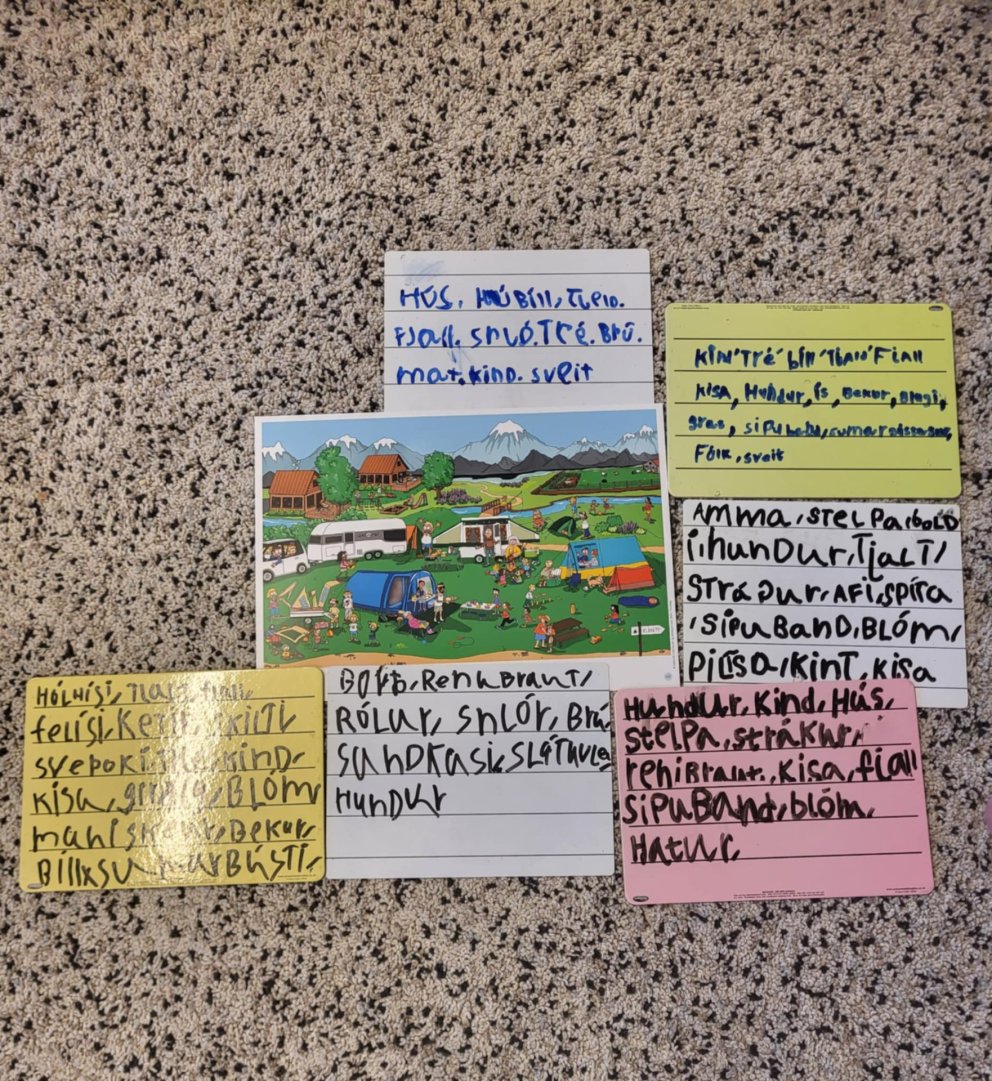 HÚS, HÚBíll, TJeld.
FJall, SnJó. Tré. Brú.
mat. kind. sveit
KIN'Tré'bíll'TJald'FIall
KISA, Hundur, ÍS, BeKur,
gras, sipubabd,
FólK, sveit
AMMA, STELPA, bOLD
I, hunDur, TJaLT,
STráƏur, AFi, SPíTa
, SIPUBAND, BLÓM,
PILISA, KINT, KISA
HÓLHÍSI, TJALD, fIall,
felísi, KILTI,
KIND,
KISa, BLÓM
BeKur,
Bíll,
BORÐ, RenhBrauT,
RÓLUr, SnLÓr, Brú
SandKasi, SLáTUVIe
HunDur
Hundur, Kind, Hús,
Stelpa, strákur,
reniBraut, Kisa, fiall
SIPUBand, blóm,
Hatur,